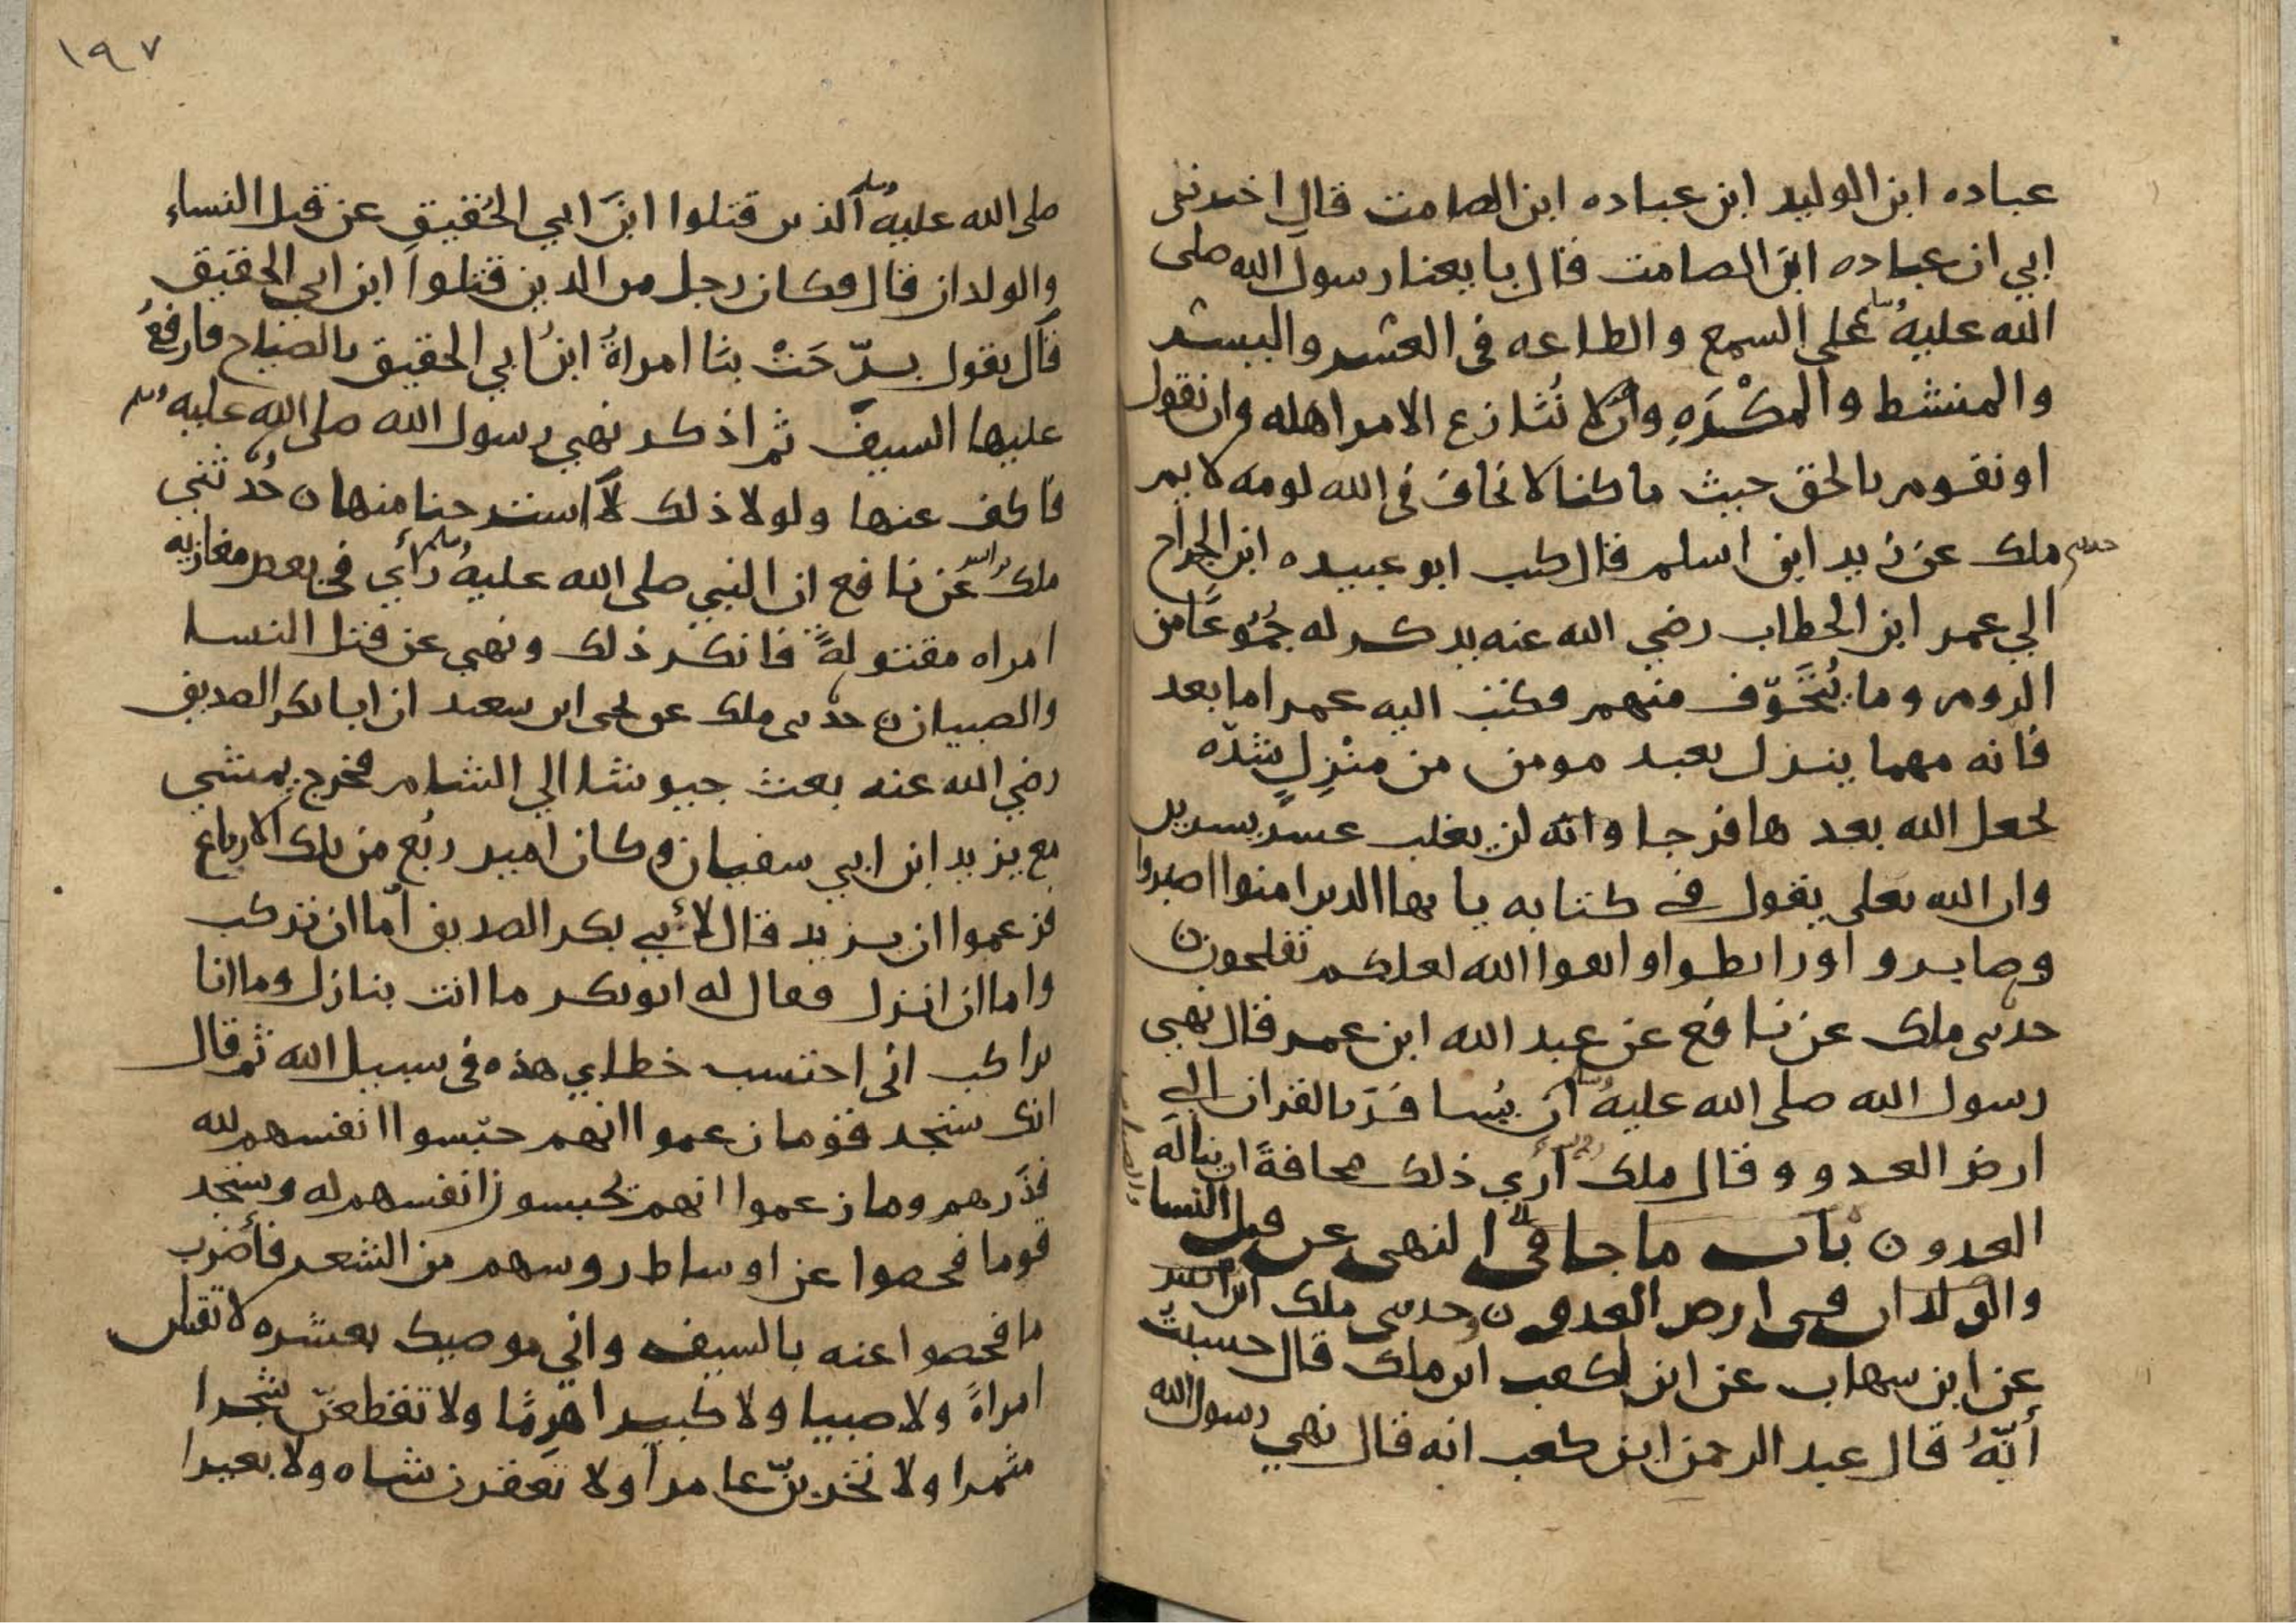 عباده ابن الوليد ابن عباده ابن الصامت قال اخبرني
ابي ان عباده ابن الصامت قال بايعنا رسول الله صلى
الله عليه وسلم على السمع والطاعه في العسر واليسر
والمنشط والمكره وان لا ننازع الامر اهله وان نقول
او نقوم بالحق حيث ما كنا لا نخاف في الله لومه لايم
حدثني ملك عن زيد ابن اسلم قال كتب ابو عبيده ابن الجراح
الي عمر ابن الخطاب رضي الله عنه يذكر له جموعا من
الروم وما يتخوف منهم فكتب اليه عمر اما بعد
فانه مهما ينزل بعبد مومن من منزل شده
يجعل الله بعدها فرجا وانه لن يغلب عسر يسرين
وان الله تعلى يقول في كتابه يا يها الذين امنوا اصبروا
وصابروا ورابطوا واتقوا الله لعلكم تفلحون
حدثني ملك عن نافع عن عبد الله ابن عمر قال نهي
رسول الله صلى الله عليه وسلم ان يسافر بالقران الي
ارض العدو وقال ملك أري ذلك مخافة ان يناله
العدو باب ما جا في النهى عن قتل النسا
والولدان في ارض العدو وحدثني ملك ابن انس
عن ابن شهاب عن ابن لكعب ابن ملك قال حسبت
أنه قال عبد الرحمن ابن كعب انه قال نهي رسول الله
١٩٧
صلى الله عليه وسلم الذين قتلوا ابن ابي الحقيق عن قتل النساء
والولدان قال فكان رجل من الذين قتلوا ابن ابي الحقيق
قال يقول برحت بنا امراة ابن ابي الحقيق بالصياح فارفع
عليها السيف ثم اذكر نهي رسول الله صلى الله عليه وسلم
فاكف عنها ولولا ذلك لاسترحنا منها حدثني
ملك عن نافع ان النبي صلى الله عليه وسلم رأي في بعض مغازيه
امراه مقتولة فانكر ذلك ونهي عن قتل النسا
والصبيان حدثني ملك عن يحى ابن سعيد ان ابا بكر الصديق
رضي الله عنه بعث جيوشا الي الشام فخرج يمشي
مع يزيد ابن ابي سفيان وكان امير ربع من تلك الارباع
فزعموا ان يزيد قال لأبي بكر الصديق اما ان تركب
واما ان انزل فقال له ابو بكر ما انت بنازل وما انا
براكب اني احتسب خطاي هذه في سبيل الله ثم قال
انك ستجد قوما زعموا انهم حبسوا انفسهم لله
فذرهم وما زعموا انهم يحبسون انفسهم له وستجد
قوما فحصوا عن اوساط روسهم من الشعر فأضرب
ما فحصوا عنه بالسيف واني موصيك بعشره لا تقتلن
امراة ولا صبيا ولا كبيرا هرما ولا تقطعن شجرا
مثمرا ولا تخربن عامرا ولا تعقرن شاه ولا بعيرا